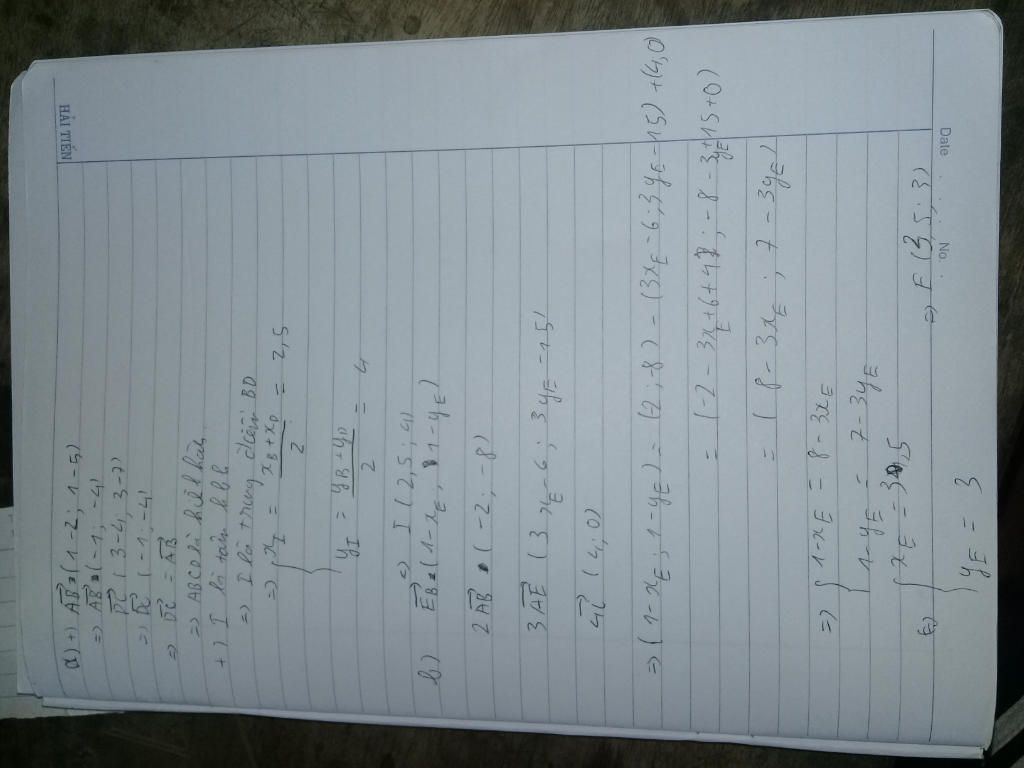 HẢI TIẾN
Date No.
a) +) AB = (1-2; 1-5)
=> AB = (-1; -4)
DC (3-4; 3-7)
=> DC (-1; -4)
=> DC = AB
=> ABCD là hình bình hành
+) I là tâm hbh
=> I là trung điểm BD
=> { x_I = (x_B + x_D)/2 = 2,5
y_I = (y_B + y_D)/2 = 4
=> I (2,5; 4)
b) EB = (1-x_E; 1-y_E)
2AB (-2; -8)
3AE (3x_E-6; 3y_E-15)
4i (4; 0)
=> (1-x_E; 1-y_E) = (-2; -8) - (3x_E-6; 3y_E-15) + (4,0)
= (-2-3x_E+6+4; -8-3y_E+15+0)
= (8-3x_E; 7-3y_E)
=> { 1-x_E = 8-3x_E
1-y_E = 7-3y_E
{ x_E = 3,5
y_E = 3
=> E (3,5; 3)